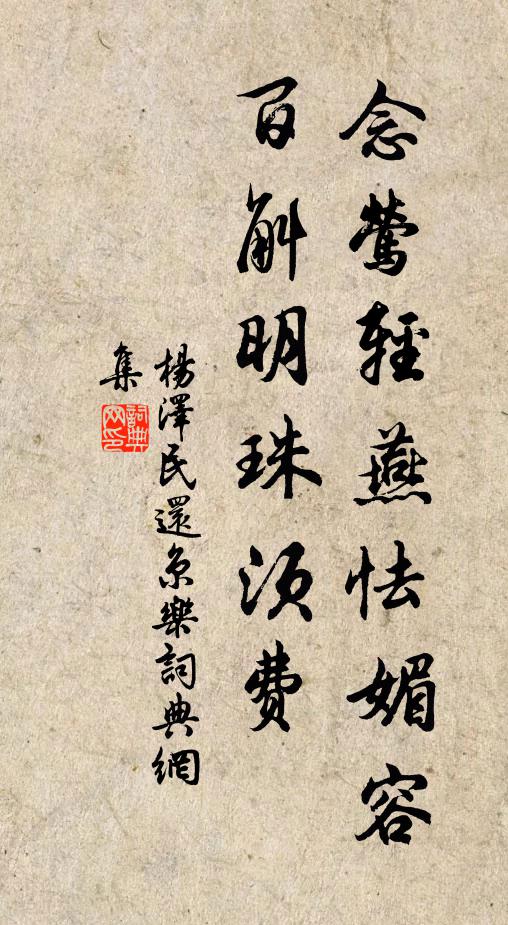 念鶯輕燕怯媚容
百斛明珠須費
楊澤民還京樂詞典網
集
詞典網印